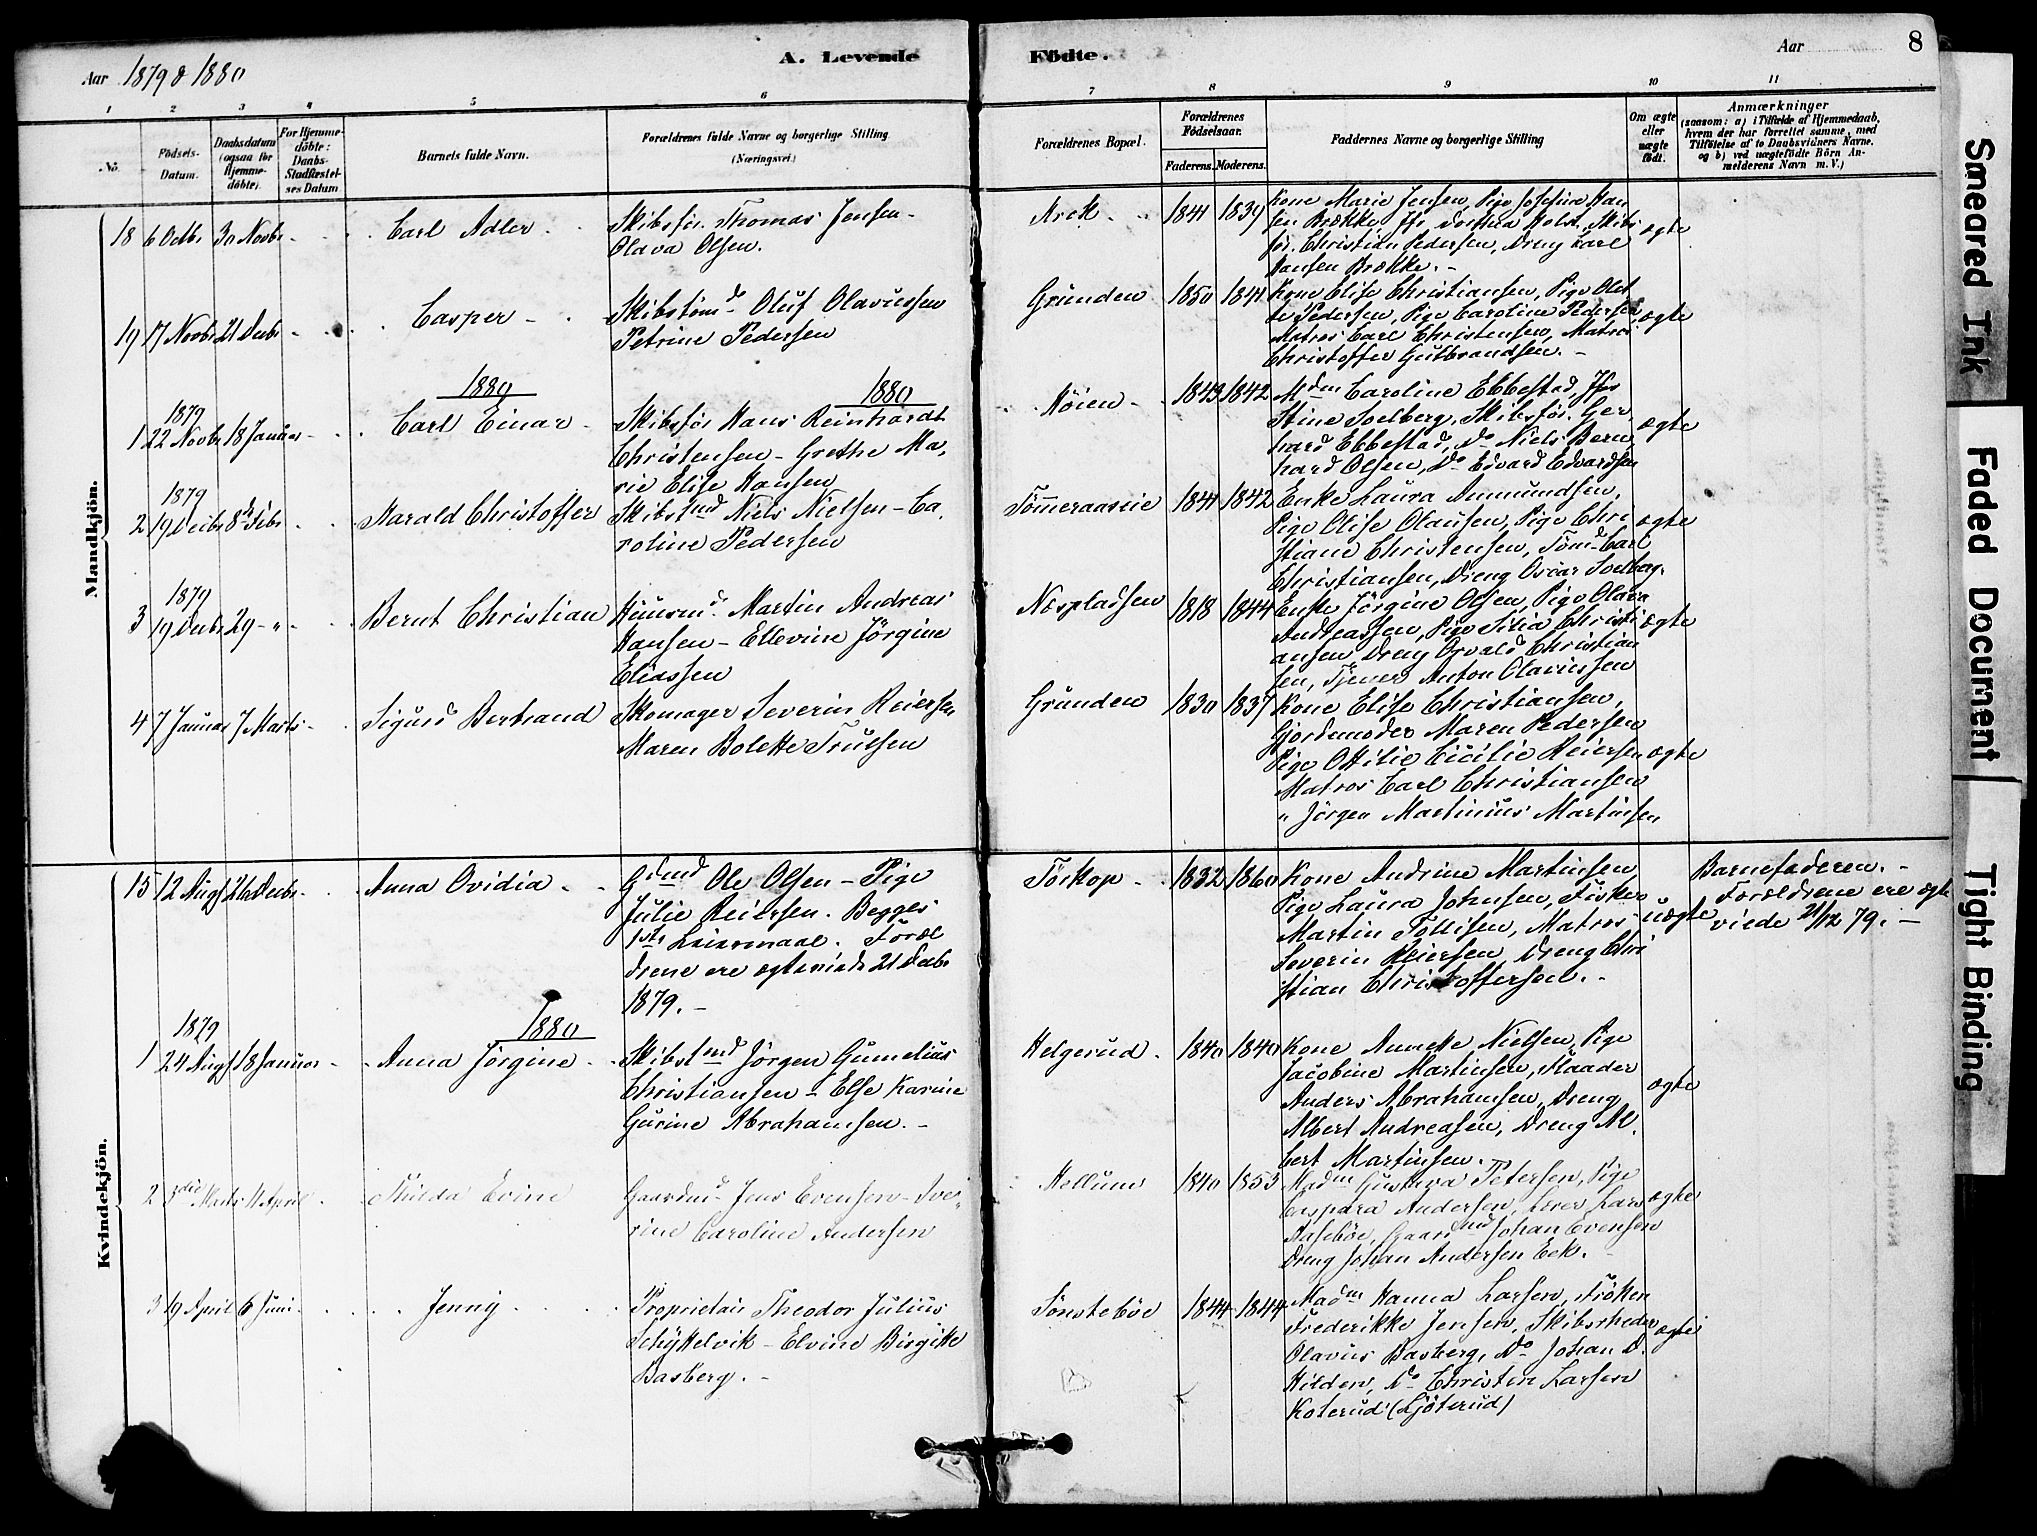 Aar 1879 & 1880
A. Levende
Födte.
Aar
8
1 2 3 4 5 6 7 8 9 10 11
No.
Födsels-
Datum.
Daabsdatum
(ogsaa for
Hjemme-
döbte).
For Hjemme-
döbte:
Daabs-
Stadfæstel-
ses Datum
Barnets fulde Navn.
Forældrenes fulde Navne og borgerlige Stilling
(Næringsvei.)
Forældrenes Bopæl.
Forældrenes
Födselsaar.
Faderens. Moderens.
Faddernes Navne og borgerlige Stilling
Om ægte
eller
uægte
födt.
Anmærkninger
(saasom: a) i Tilfælde af Hjemmedaab,
hvem der har forrettet samme, med
Tilföielse af to Daabsvidners Navne.
og b) ved uægtefödte Börn An-
melderens Navn m. V.)
Mandkjön.
18 6 Octbr 30 Novbr - Carl Adler
Skibsför. Thomas Jensen -
Olava Olsen.
1841 1839
Kone Marie Jensen, Pige Josefine Han
sen Brække, Jfr Dorthea Holst, Skibs
för. Christian Pedersen, Dreng Karl
Hansen Brække. -
ægte
19 17 Novbr 21 Decbr - Casper -
Skibstømd Oluf Olavussen
Petrine Pedersen
Gründen 1850 1841
Kone Elise Christiansen, Pige Olet
te Pedersen, Pige Caroline Pedersen
Matros Carl Christensen, Matros
Christoffer Gulbrandsen. -
ægte
1880
1880
1879
1 22 Novbr 18 Januar - Carl Einar -
Skibsför Hans Reinhardt
Christensen - Grethe Ma,
rie Elise Hansen
Höien - 1843 1842
Mdm Caroline Ebbestad, Jfr
Stine Soelberg, Skibsför. Ger
hard Ebbestad, Do Niels Bern
hard Olsen, Do Edvard Edvardsen
ægte
1879
2 19 Decbr 8de Febr - Harald Christoffer
Skibstmd Niels Nielsen - Ca,
roline Pedersen
Tømmeraaseie 1841 1842
Enke Laura Ammundsen,
Pige Elise Olausen, Pige Chri
stiane Christensen, Tømd Carl
Christiansen, Dreng Oscar Soelberg.
ægte
1879
3 19 Decbr 29 - " - Bernt Christian
Huusmd Martin Andreas
Hansen - Ellevine Jörgine
Eliassen
Næspladsen 1818 1844
Enke Jörgine Olsen, Pige Olava
Andreassen, Pige Silia Christi
ansen, Dreng Osvald Christian
sen, Tjener Anton Olavussen
ægte
4 7 Januar 7 Marts - Sigurd Bertrand
Skomager Severin Reiersen
Maren Bolette Truelsen
Gründen 1830 1837
Kone Elise Christiansen,
Gjordemoder Maren Pedersen
Pige Ottilie Cicilie Reiersen
Matros Carl Christiansen
" Jörgen Martinius Martinsen
ægte
Kvindekjön.
15 12 Augs 26 Decbr - Anna Ovidia -
Gdmd Ole Olsen - Pige
Julie Reiersen. Begges
1ste Leiermaal. Foræl
drene ere egteviede 21 Decbr
1879. -
Torkop - 1832 1860
Kone Andrine Martinsen,
Pige Laura Johnsen, Fisker
Martin Tollisen, Matros
Severin Reiersen, Dreng Chri
stian Christoffersen. -
uægte
Barnefaderen. -
Forældrene ere egte
viede 21/12 79. -
1880
1879
1 24 Augs 18 Januar - Anna Jörgine -
Skibstmd Jörgen Gumelius
Christiansen - Else Karine
Gurine Abrahamsen. -
Helgerud. 1840 1840
Kone Annette Nielsen, Pige
Jacobine Martinsen,
Anders Abrahamsen, Dreng
Albert Andreasen, Dreng Al,
bert Martinsen.
ægte
2 3die Marts 11 April - Thilda Evine
Gaardmd Jens Evensen - Ive,
rine Caroline Andersen
Hellum 1840 1853
Madm Gustava Petersen, Pige
Caspara Andersen, Lærer Lars
Aasebøe, Gaardmd Johan Evensen
Dreng Johan Andersen Eek. -
ægte
3 19 April 6 Juni - Jenny
Proprietair Theodor Julius
Schyttelvik - Elvine Birgitte
Basberg. -
Tønstebøe 1844 1844
Madm Hanna Larsen, Frøken
Frederikke Jensen, Skibsrheder
Olavus Basberg, Do Johan D.
Hilden, Do Christen Larsen
Kolerud (Ljöterud)
ægte
Smeared Ink
Faded Document
Tight Binding